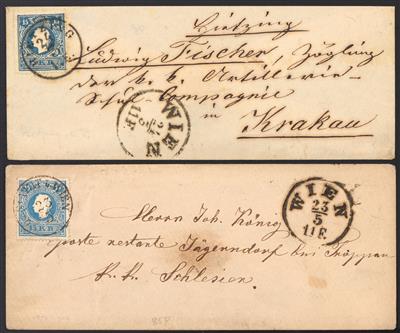 Hietzing
Ludwig Fischer, Zögling
der k. k. Artillerie-
Schul-Compagnie
in
Krakau
WIEN
11F.
WIEN
23
5
11F.
Herrn Joh. König
poste restante Jägerndorf bei Troppau
k. k. Schlesien